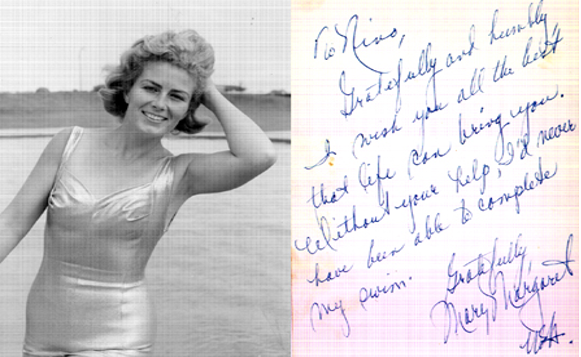 To Nino,
Gratefully and humbly
I wish you all the best
that life can bring you.
Without your help, I'd never
have been able to complete
my swim.
Gratefully
Mary Margaret
USA.